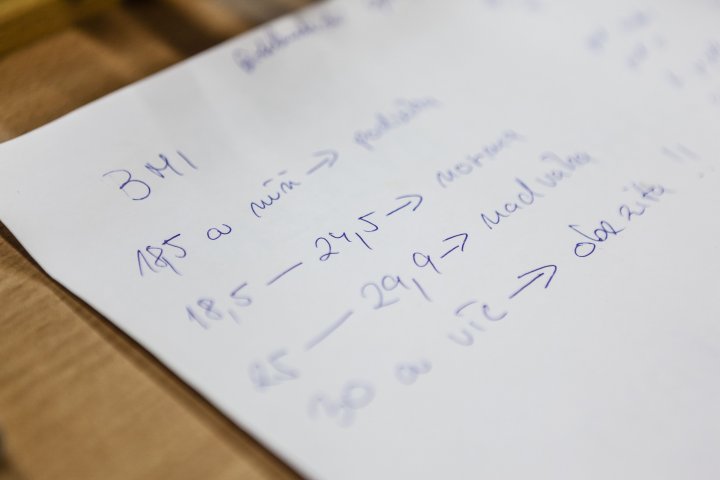 BMI
18,5 a míň → podváha
18,5 — 24,5 → norma
25 — 29,9 → nadváha
30 a víc → obezita !!